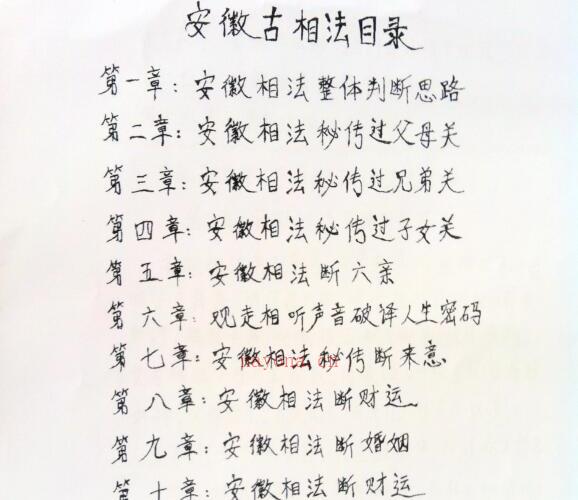 安徽古相法目录
第一章：安徽相法整体判断思路
第二章：安徽相法秘传过父母关
第三章：安徽相法秘传过兄弟关
第四章：安徽相法秘传过子女关
第五章：安徽相法断六亲
第六章：观走相听声音破译人生密码
第七章：安徽相法秘传断来意
第八章：安徽相法断财运
第九章：安徽相法断婚姻
第十章：安徽相法断财运